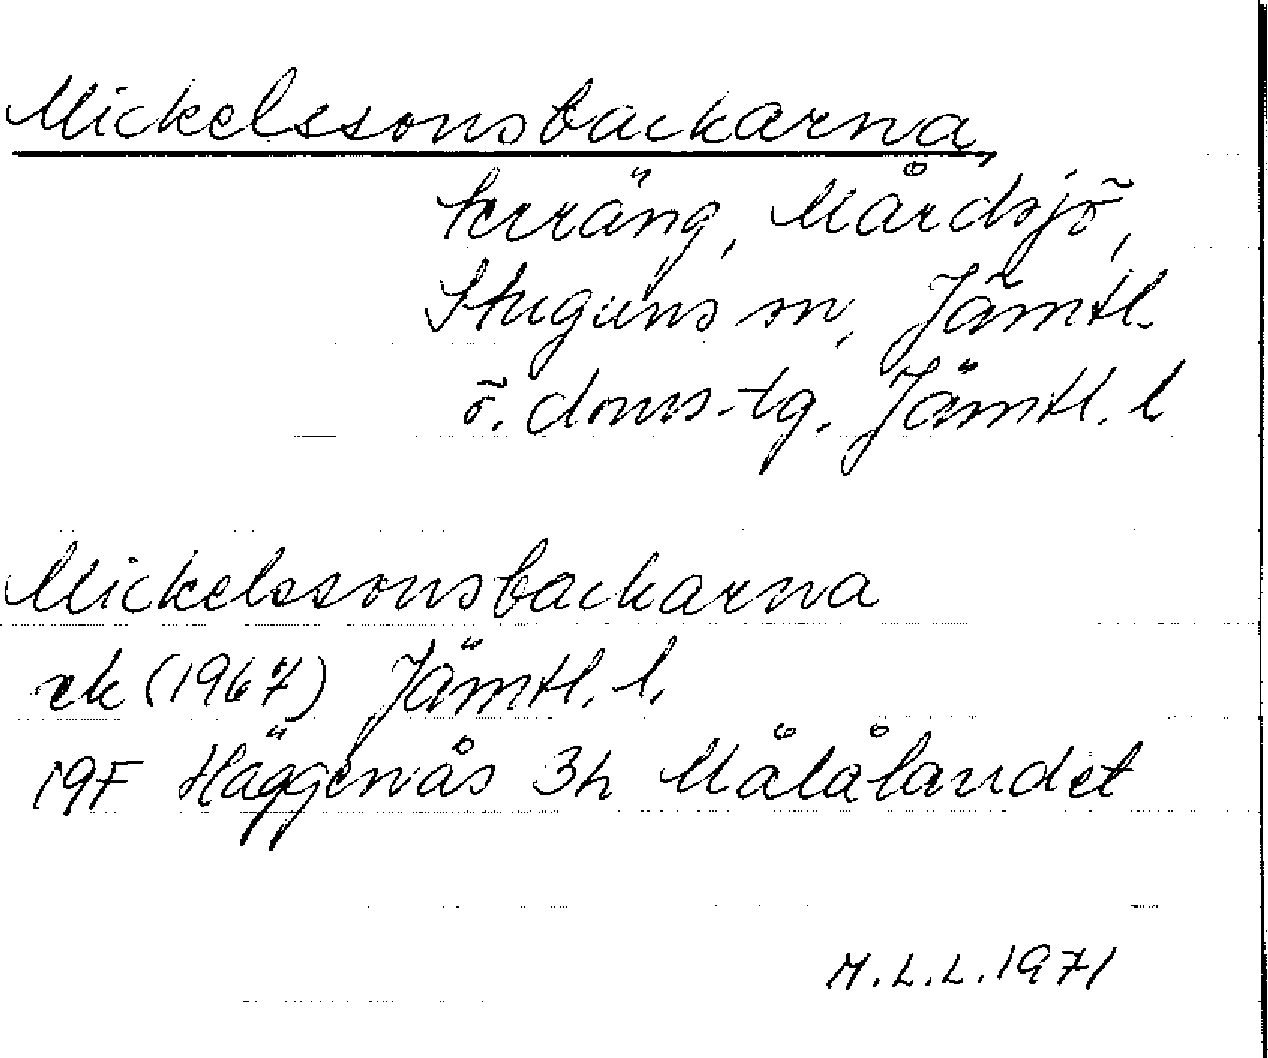 Mickelssonsbackarna,
terräng, Mårdsjö,
Stuguns sn, Jämtl.
ö. doms.-tg. Jämtl. l
Mickelssonsbackarna
ek (1967) Jämtl. l.
19F Häggenås 3h Mälålandet
M.L.L. 1971